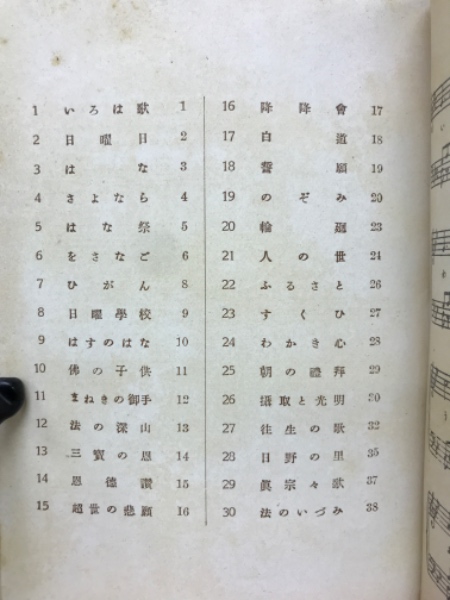 1 いろは歌 1
2 日曜日 2
3 はな 3
4 さよなら 4
5 はな祭 5
6 をさなご 6
7 ひがん 8
8 日曜學校 9
9 はすのはな 10
10 佛の子供 11
11 まねきの御手 12
12 法の深山 13
13 三寶の恩 14
14 恩德讃 15
15 超世の悲願 16
16 降降會 17
17 白道 18
18 誓願 19
19 のぞみ 20
20 輪廻 23
21 人の世 24
22 ふるさと 26
23 すくひ 27
24 わかき心 28
25 朝の禮拜 29
26 攝取と光明 30
27 往生の歌 32
28 日野の里 35
29 眞宗々歌 37
30 法のいづみ 38